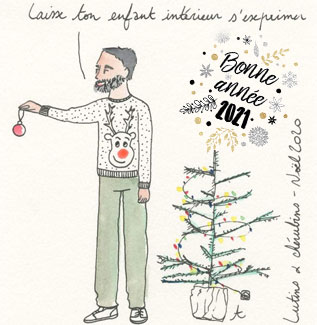 Laisse ton enfant intérieur s'exprimer
Bonne
année
2021
Lutins & chérubins - Noël 2020